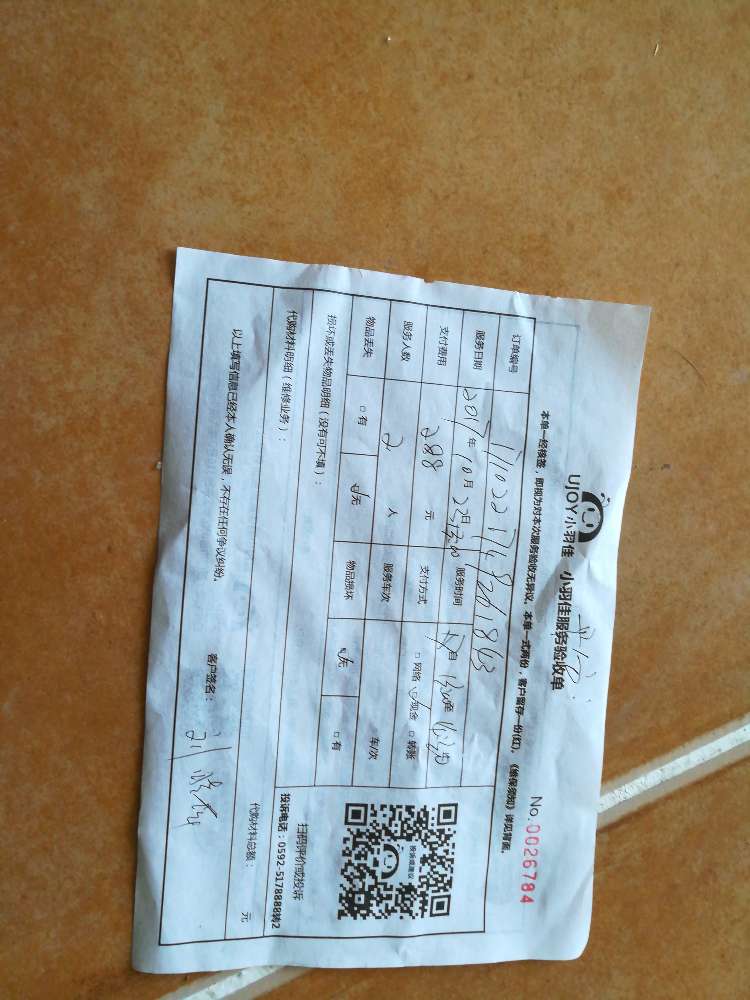 UJOY小羽佳 小羽佳服务验收单
No.0026784
本单一经核签，即视为对本次服务验收无异议。本单一式两份，客户留存一份(红)。《维保须知》详见背面。
订单编号
服务日期 2017年10月22日 服务时间 自 至
支付费用 288 元 支付方式 □网络 ☑现金 □转账
服务人数 2 人 服务车次 车/次
物品丢失 □有 ☑无 物品损坏 ☑无 □有
损坏或丢失物品明细（没有可不填）：
投诉或建议
扫码评价或投诉
投诉电话：0592-5178888转2
代购材料明细（维修业务）：
代购材料总额： 元
以上填写信息已经本人确认无误，不存在任何争议纠纷。
客户签名：